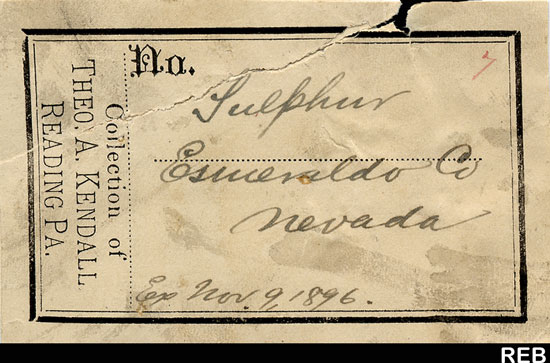 Collection of
THEO. A. KENDALL
READING PA.
No.
7
Sulphur
Esmeraldo Co
Nevada
Ex Nov. 9, 1896.
REB